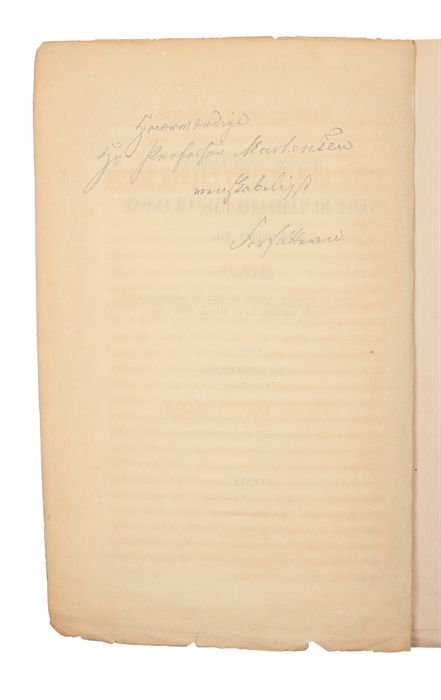 Høiærværdige
Hr Professor Martensen
venskabeligst
Forfatteren.